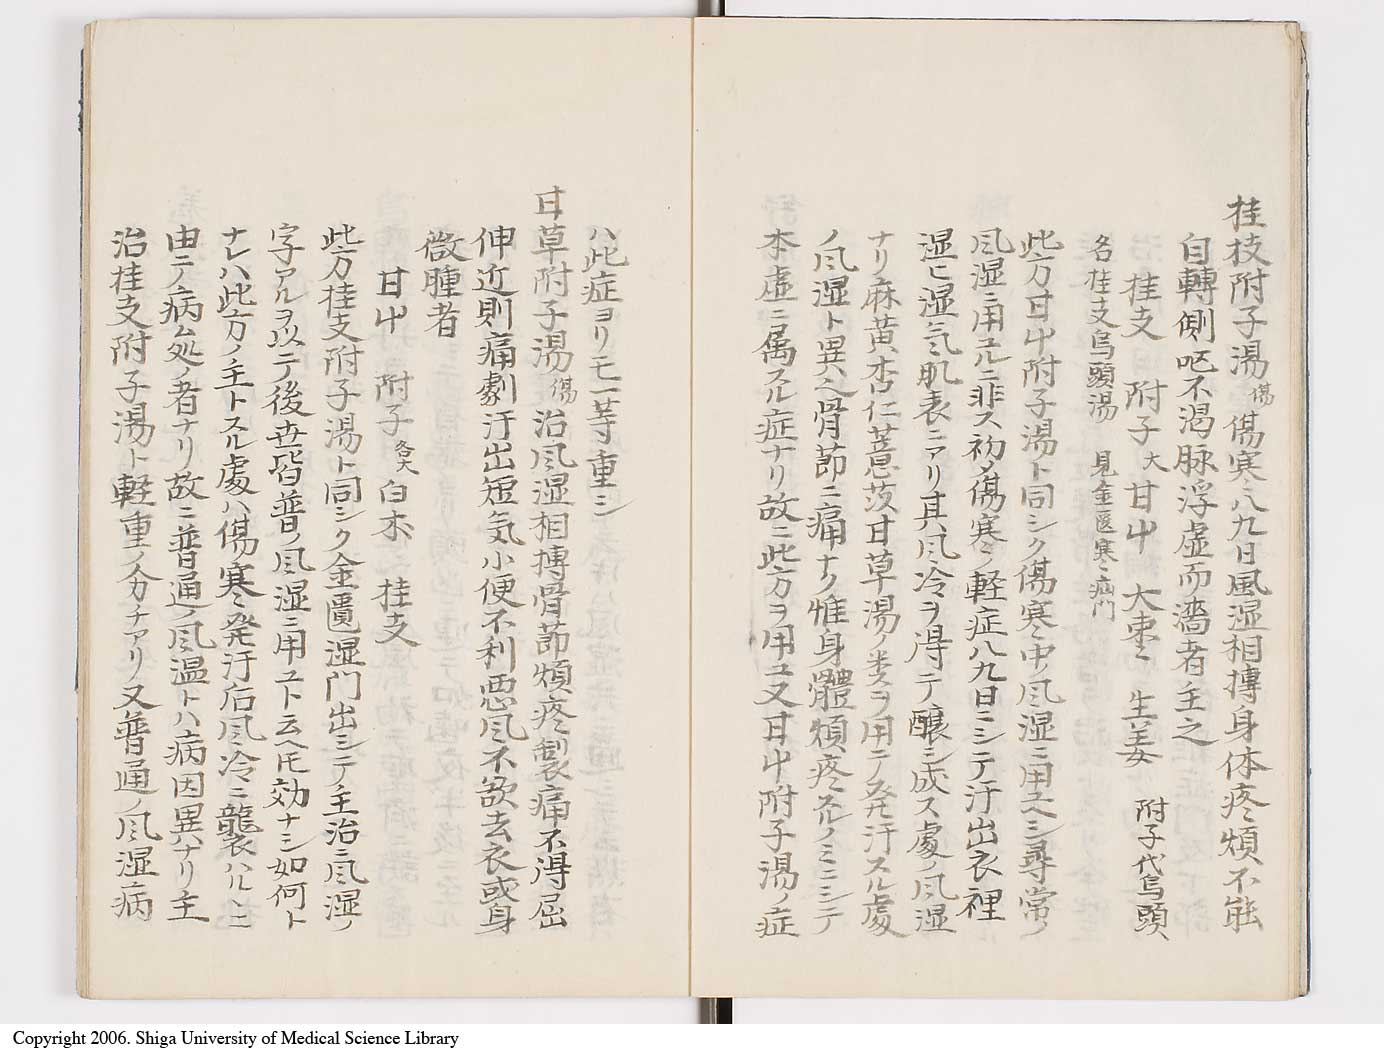 桂枝附子湯傷傷寒八九日風湿相摶身体疼煩不能
自轉側呕不渇脉浮虚而濇者主之
桂支 附子大 甘艸 大枣 生姜 附子代烏頭
名桂支烏頭湯 見金匱寒疝門
此方甘艸附子湯ト同シク傷寒中ノ风湿ニ用ユヘシ尋常ノ
风湿ニ用ユルニ非ス初メ傷寒ノ軽症八九日ニシテ汗出衣裡
湿ヒ湿気肌表ニアリ其风冷ヲ得テ醸シ成ス處ノ风湿
ナリ麻黄杏仁薏苡甘草湯ノ类ヲ用ニノ発汗スル處
ノ风湿ト異ヘ骨節ニ痛ナク惟身體煩疼スルノミニシテ
本虚ニ属スル症ナリ故ニ此方ヲ用ユ又甘艸附子湯ノ症
ハ此症ヨリモ一等重シ
甘草附子湯傷治风湿相摶骨節煩疼掣痛不得屈
伸近則痛劇汗出短気小便不利悪风不欲去衣或身
微腫者
甘艸 附子各大 白朮 桂支
此方桂支附子湯ト同シク金匱湿门出シテ主治ニ风湿ノ
字アルヲ以テ後世皆普ノ风湿ニ用ユト云ヘ𪜈効ナシ如何ト
ナレハ此方ノ主トスル處ハ傷寒発汗后风冷ニ襲ハルヽニ
由テ病ム処ノ者ナリ故ニ普通ノ风温トハ病因異ナリ主
治桂支附子湯ト軽重ノ分チアリ又普通ノ风湿病
Copyright 2006. Shiga University of Medical Science Library